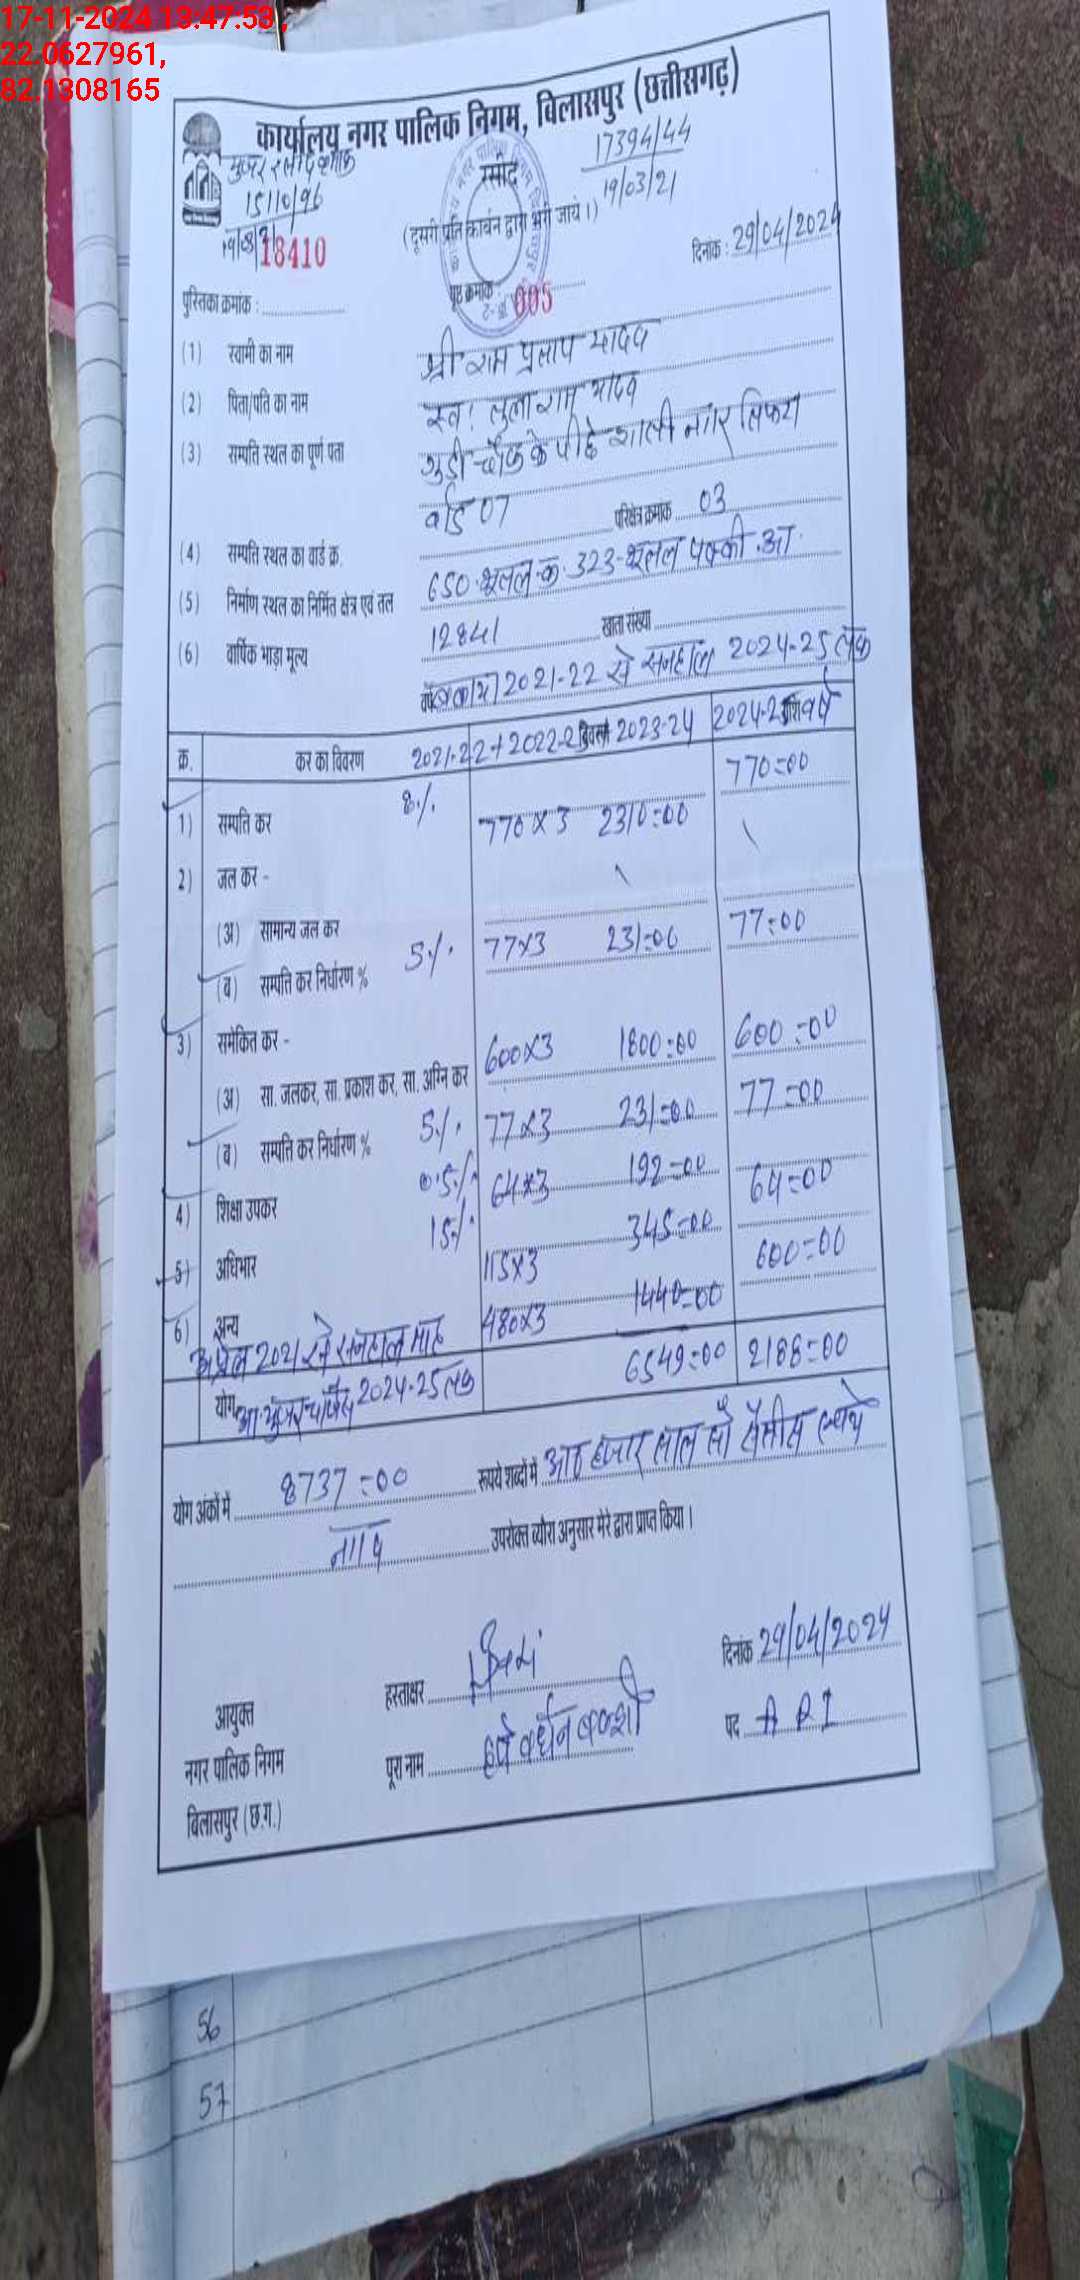 17-11-2024 13:47:53,
22.0627961,
82.1308165
कार्यालय नगर पालिक निगम, विलासपुर (छत्तीसगढ़)
रसीद
17394/44
19/03/21
15110/96
(दूसरी प्रति कार्बन द्वारा भरी जाये।)
18410
दिनांक : 29/04/2024
पुस्तिका क्रमांक :
पृष्ठ क्रमांक : 005
(1) स्वामी का नाम श्री राम प्रताप यादव
(2) पिता/पति का नाम स्व. तुलाराम यादव
(3) सम्पति स्थल का पूर्ण पता गुड़ी चौक के पीछे नगर
वार्ड 07
(4) सम्पति स्थल का वार्ड क्र. परिक्षेत्र क्रमांक 03
(5) निर्माण स्थल का निर्मित क्षेत्र एवं तल 650 323 पक्की आ.
(6) वार्षिक भाड़ा मूल्य 12841 खाता संख्या
वर्ष बकाया 2021-22 से सनहाल 2024-25 तक
क्र. कर का विवरण 2021-22+2022-2 2023-24 2024-25 वर्ष
1) सम्पति कर 8% 770x3 2310=00 770=00
2) जल कर -
(अ) सामान्य जल कर
(ब) सम्पत्ति कर निर्धारण % 5% 77x3 231=00 77=00
3) समेकित कर -
(अ) सा. जलकर, सा. प्रकाश कर, सा. अग्नि कर 600x3 1800=00 600=00
(ब) सम्पत्ति कर निर्धारण % 5% 77x3 231=00 77=00
4) शिक्षा उपकर 0.5% 64x3 192=00 64=00
5) अधिभार 15% 115x3 345=00
6) अन्य 480x3 1440=00 600=00
अप्रैल 2021 से सनहाल माह
योग 2024-25 तक 6549=00 2188=00
योग अंकों में 8737=00 रूपये शब्दों में आठ हजार सात सौ सैंतीस रूपये
उपरोक्त ब्यौरा अनुसार मेरे द्वारा प्राप्त किया।
हस्ताक्षर दिनांक 29/04/2024
आयुक्त
नगर पालिक निगम पूरा नाम हर्ष वर्धन बक्शी पद A R I
विलासपुर (छ.ग.)
56
57